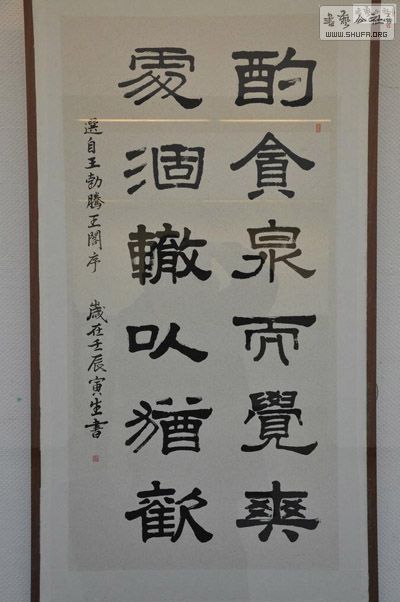 酌貪泉而覺爽
處涸轍以猶歡
選自王勃滕王閣序 歲在壬辰寅生書
书艺公社
WWW.SHUFA.ORG